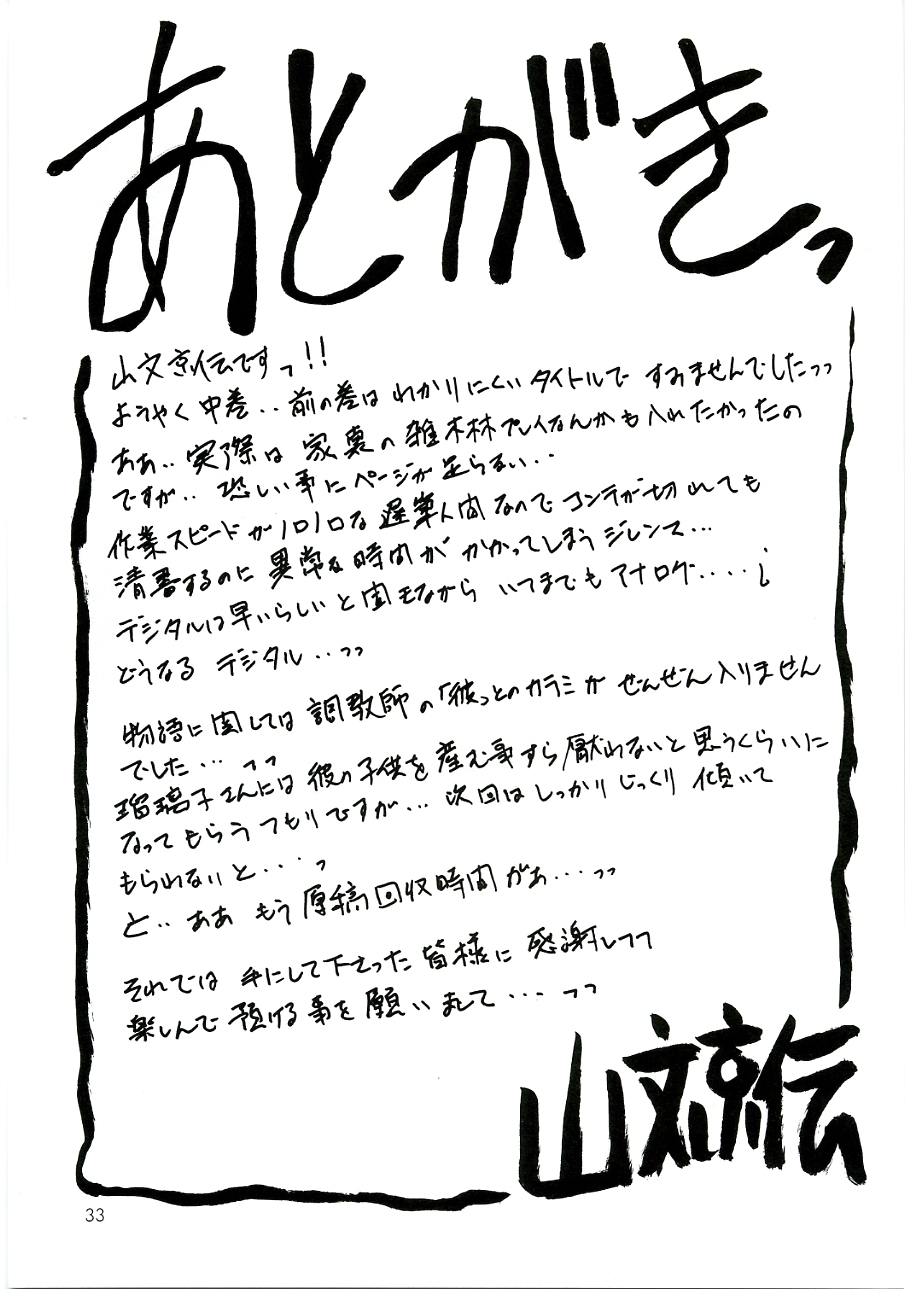 あとがきっ
山文京伝ですっ!!
ようやく中巻‥前の巻はわかりにくいタイトルですみませんでしたっっ
ああ‥実際は家裏の雑木林プレイなんかも入れたかったの
ですが‥恐しい事にページが足らない‥
作業スピードがノロノロな遅筆人間なのでコンテが切れても
清書するのに異常な時間がかかってしまうジレンマ…
デジタルは早いらしいと聞きながらいつまでもアナログ‥‥¡
どうなるデジタル‥っっ
物語に関しては調教師の「彼」とのカラミがぜんぜん入りません
でした…っっ
瑠璃子さんには彼の子供を産む事すら厭わないと思うくらいに
なってもらうつもりですが…次回はしっかりじっくり傾いて
もらわないと…っ
と‥ああもう原稿回収時間があ…っっ
それでは手にして下さった皆様に感謝しつつ
楽しんで預ける事を願いまして…っっ
山文京伝
33